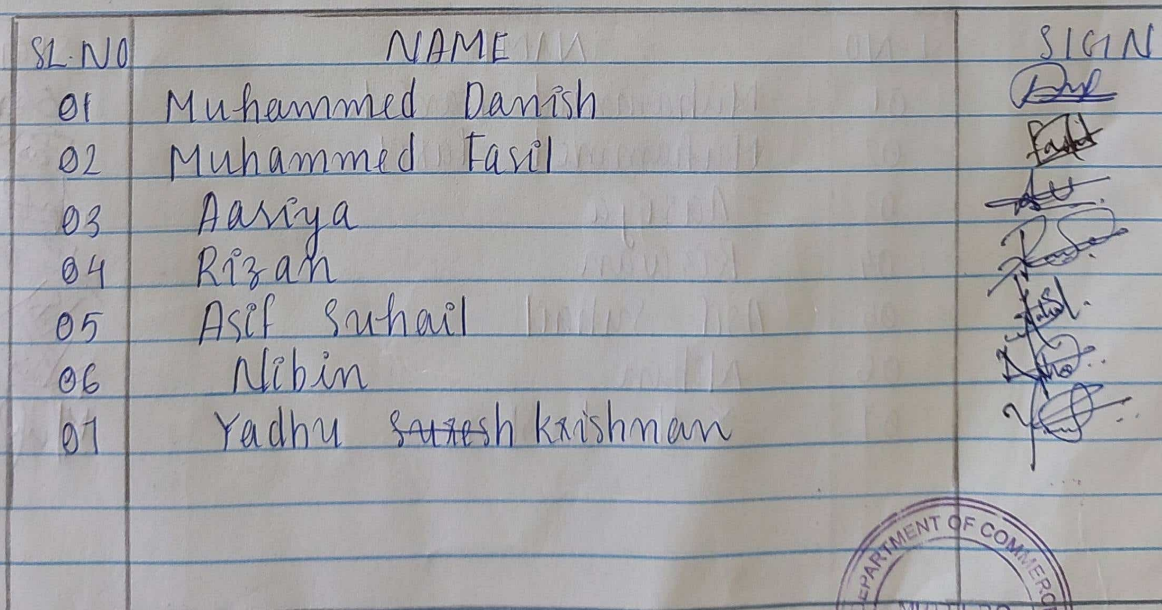 SL.NO NAME SIGIN
01 Muhammed Danish
02 Muhammed Fasil
03 Aasiya
04 Rizan
05 Asif Suhail
06 Nibin
07 Yadhu Suresh Krishnan
DEPARTMENT OF COMMERC